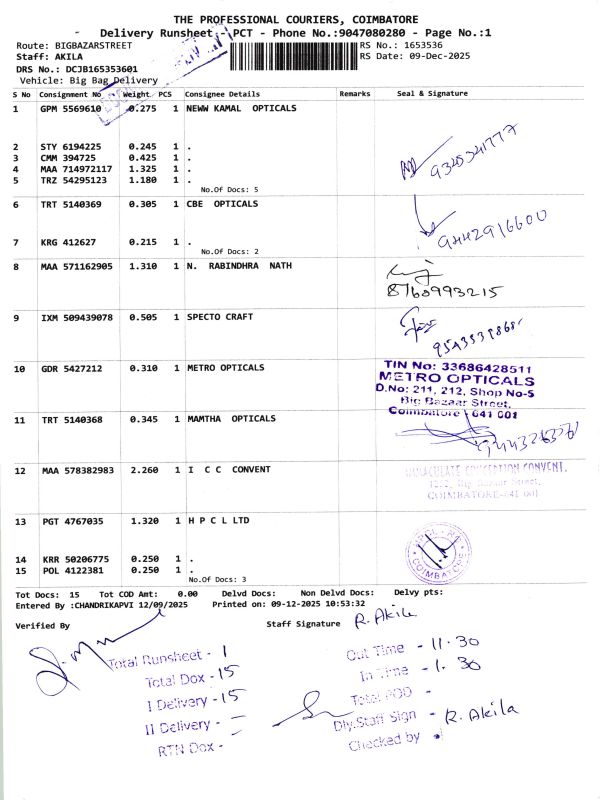 THE PROFESSIONAL COURIERS, COIMBATORE
Delivery Runsheet - PCT - Phone No.:9047080280 - Page No.:1
Route: BIGBAZARSTREET
RS No.: 1653536
Staff: AKILA
RS Date: 09-Dec-2025
DRS No.: DCJB165353601
Vehicle: Big Bag Delivery
S No Consignment No Weight PCS Consignee Details Remarks Seal & Signature
1 GPM 5569610 0.275 1 NEWW KAMAL OPTICALS
2 STY 6194225 0.245 1 .
3 CMM 394725 0.425 1 .
4 MAA 714972117 1.325 1 .
5 TRZ 54295123 1.180 1 .
No.Of Docs: 5
6 TRT 5140369 0.305 1 CBE OPTICALS
9442916600
7 KRG 412627 0.215 1 .
No.Of Docs: 2
8 MAA 571162905 1.310 1 N. RABINDHRA NATH
8760993215
9 IXM 509439078 0.505 1 SPECTO CRAFT
10 GDR 5427212 0.310 1 METRO OPTICALS
TIN No: 33686428511
METRO OPTICALS
D.No: 211, 212, Shop No-5
Big Bazaar Street,
Coimbatore - 641 001
11 TRT 5140368 0.345 1 MAMTHA OPTICALS
12 MAA 578382983 2.260 1 I C C CONVENT
IMMACULATE CONCEPTION CONVENT.
Big Bazaar Street,
COIMBATORE-641 001
13 PGT 4767035 1.320 1 H P C L LTD
COIMBATORE
14 KRR 50206775 0.250 1 .
15 POL 4122381 0.250 1 .
No.Of Docs: 3
Tot Docs: 15 Tot COD Amt: 0.00 Delvd Docs: Non Delvd Docs: Delvy pts:
Entered By :CHANDRIKAPVI 12/09/2025 Printed on: 09-12-2025 10:53:32
Verified By
Staff Signature R. Akila
Total Runsheet - 1
Total Dox - 15
I Delivery - 15
II Delivery -
RTN Dox -
Out Time - 11.30
In Time - 1.30
Total POD -
Dly.Staff Sign - R. Akila
Checked by